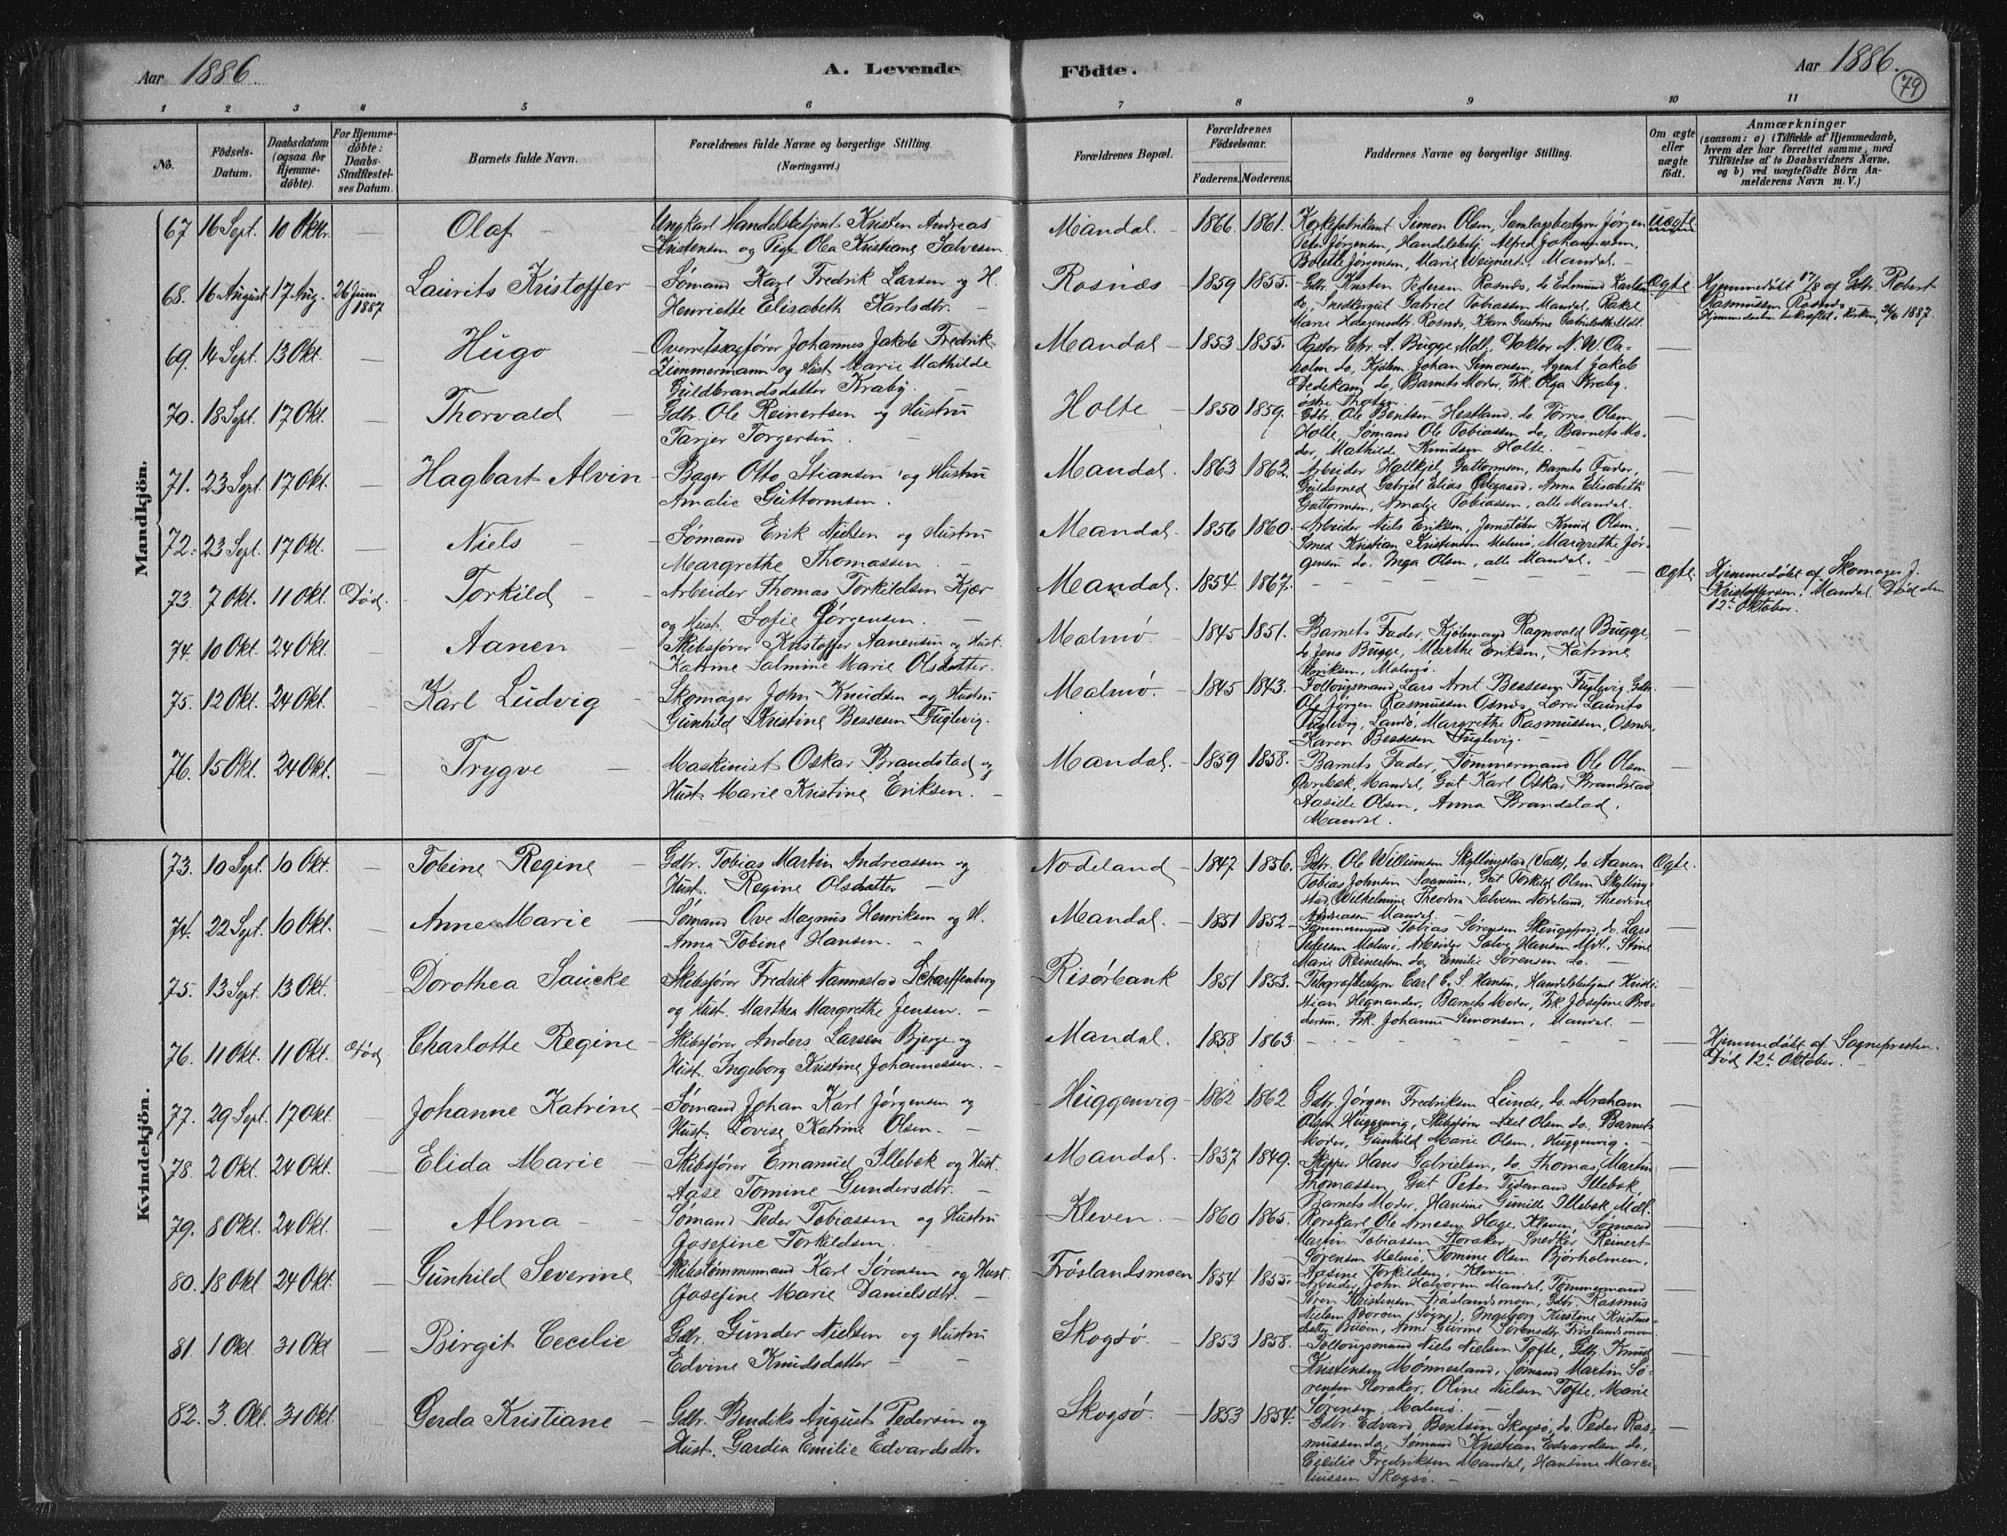 Aar 1886.
A. Levende Födte.
Aar 1886.
79
1 2 3 4 5 6 7 8 9 10 11
No.
Födsels-Datum.
Daabsdatum (ogsaa for Hjemmedöbte).
For Hjemmedöbte: Daabs-Stadfæstelses Datum.
Barnets fulde Navn.
Forældrenes fulde Navne og borgerlige Stilling.
(Næringsvei.)
Forældrenes Bopæl.
Forældrenes Födselsaar.
Faderens. Moderens.
Faddernes Navne og borgerlige Stilling.
Om ægte eller uægte födt.
Anmærkninger
(saasom: a) i Tilfælde af Hjemmedaab, hvem der har forrettet samme, med Tilföielse af to Daabsvidners Navne, og b) ved uægtefödte Börn Anmelderens Navn m. V.)
Mandkjön.
67 16 Sept. 10 Oktbr. — Olaf - Ungkarl Handelsbetjent Kristen Andreas
Kristensen og Pige Olea Kristiane Salvesen
Mandal. - 1866 1861. Korkefabrikant Simon Olsen, Samlagsbestyrer Jørgen uægte
Peter Jørgensen, Handelsbetj. Alfred Johannessen,
Bolette Jørgensen, Marie Weignert, Mandal. -
68. 16 August 17 Aug. 26 Juni 1887 Laurits Kristoffer - Sømand Karl Fredrik Larsen og H.
Henriette Elisabeth Karlsdtr. -
Rosnæs - 1859 1855. Gdbr. Kristen Pedersen Rosnæs, do Edmund Karlsen Ægte
do, Snedkergut Gabriel Tobiassen Mandal, Rakel
Marie Haagensdtr. Rosnæs, Klara Gustine Gabrielsdtr. Mdl.
Hjemmedøbt 17/8 af Gdbr. Robert
Rasmussen Rosnæs.
Hjemmedaaben bekræftet i Kirken 26/6 1887.
69. 14 Sept. 13 Okt. — Hugo - Overretssagfører Johannes Jakob Fredrik
Zimmermann og Hust. Marie Mathilde
Guldbrandsdatter Kraby.
Mandal - 1853 1855. Pastor Chr. A. Bugge Mdl., Doktor N. W.
holm do, Kjøbm. Johan Simonsen, Agent Jakob
Dedekam do, Barnets Moder, Frk. Olga Kraby.
70. 18 Sept. 17 Okt. — Thorvald - Gdbr. Ole Reinertsen og Hustru
Tarjer Torgersen. -
Holte - 1850 1859. Gdbr. Ole Bentsen Hestland, do. Torres Olsen
Holte, Sømand Ole Tobiassen do, Barnets Mo-
der, Mathilde Knudsen Holte. -
71. 23 Sept. 17 Okt. — Hagbart Alvin - Bager Otto Stiansen og Hustru
Amalie Guttormsen.
Mandal. - 1863 1862. Arbeider Hallkjel Guttormsen, Barnets Fader,
Guldsmed Gabriel Elias Ødegaard, Anna Elisabeth
Guttormsen, Amalje Tobiassen, alle Mandal.
72. 23 Sept. 17 Okt. — Niels - Sømand Erik Nielsen og Hustru
Margrethe Thomassen. -
Mandal - 1856 1860. Arbeider Niels Eriksen, Jernstøber Knud Olsen,
Smed Kristian Kristensen Malmø, Margrethe Jør-
gensen do. Inga Olsen, alle Mandal. -
73. 7 Okt. 11 Okt. Død. Torkild - Arbeider Thomas Torkildsen Kjær
og Hust. Sofie Jørgensen. -
Mandal - 1854. 1867. - - - Ægte Hjemmedøbt af Skomager J.
Kristoffersen, Mandal. Død den
12te Oktober.
74. 10 Okt. 24 Okt. — Aanen - Skibsfører Kristoffer Aanensen og Hust.
Katrine Salmine Marie Olsdatter.
Malmø. - 1845 1851. Barnets Fader, Kjøbmand Ragnvald Bugge,
do Jens Bugge, Marthe Eriksen, Katrine
Eriksen, Malmø.
75. 12 Okt. 24 Okt. — Karl Ludvig - Skomager John Knudsen og Hustru
Gunhild Kristine Bessesen Fuglevig.
Malmø. - 1845 1843. Tollorigsmand Lars Arnt Bessesen Fuglevig, Gdbr.
Ole Jørgen Rasmussen Osnæs, Lærer Laurits
Fuglevig, Landø, Margrethe Rasmussen, Osnæs,
Karen Bessesen Fuglevig. -
76. 15 Okt. 24 Okt. — Trygve - Maskinist Oskar Brandstad og
Hust. Marie Kristine Eriksen. -
Mandal. - 1859 1858. Barnets Fader, Tømmermand Ole Olsen
Øvrebøk, Mandal, Gut Karl Oskar Brandstad
Aasille Olsen, Anna Brandstad,
Mandal.
Kvindekjön.
73. 10 Sept. 10 Okt. — Tobine Regine - Gdbr. Tobias Martin Andreassen og
Hust. Regine Olsdatter -
Nodeland - 1847 1856. Gdbr. Ole Willumsen Skyllingstad (Valle), do. Aanen Ægte.
Tobias Johnsen Saanum, Gut Torkild Olsen Skylling-
stad, Wilhelmine Theodora Salvesen Nodeland, Theodine
Andreassen Mandal -
74. 22 Sept. 10 Okt. — Anne Marie - Sømand Ove Magnus Henriksen og H.
Anna Tobine Hansen. -
Mandal. - 1851 1852 Tømmermand Tobias Sørensen Skevigsfjord, do. Lars
Pedersen Malmø, Arbeider Salve Hansen Mdl., Stine
Marie Reinertsen do, Emilie Sørensen do. -
75. 13 Sept. 13 Okt. — Dorothea Saucke - Skibsfører Fredrik Nannestad Scharffenberg
og Hust. Marthea Margrethe Jensen. -
Risørbank - 1851 1853. Telegrafbestyrer Carl C. S. Hansen, Handelsbetjent Kristi-
stian Hegnander, Barnets Moder, Frk. Josefine Bro-
dersen, Frk. Johanne Simonsen, Mandal. -
76. 11 Okt. 11 Okt. Død. Charlotte Regine - Skibsfører Anders Larsen Bjerge og
Hust. Ingeborg Kristine Johannessen. -
Mandal - 1858 1863 - - - Hjemmedøbt af Sognepresten.
Død 12te Oktober. -
77. 29 Sept. 17 Okt. — Johanne Katrine - Sømand Johan Karl Jørgensen og
Hust. Lovise Katrine Olsen. -
Huggenvig - 1862 1862 Gdbr. Jørgen Fredriksen Lunde, do. Abraham
Olsen Huggenvig, Skibsfører Axel Olsen do. Barnets
Moder, Gunhild Marie Olsen, Huggenvig. -
78. 2 Okt. 24 Okt. — Elida Marie - Skibsfører Emanuel Illebæk og Hust.
Aase Tomine Gundersdtr. -
Mandal. - 1837 1849. Skipper Hans Gabrielsen, do. Thomas Martin
Thomassen, Gut Peter Tidemand Illebæk,
Barnets Moder, Hansine Gunille Illebæk, Mdl.
79. 8 Okt. 24 Okt. — Alma - Sømand Peder Tobiassen og Hustru
Josefine Torkildsen. -
Kleven. - 1860 1865. Rorskarl Ole Arnesen Hage, Kleven, Sømand
Martin Tobiassen Storaker, Snedker Reinert
Sørensen Malmø, Tomine Olsen Bjørholmen,
Aasine Torkildsen, Kleven
80. 18 Okt 24 Okt. — Gunhild Severine - Skibstømmermand Karl Sørensen og Hust.
Josefine Marie Danielsdtr. -
Frøslandsmoen 1854 1855. Arbeider John Halvorsen Mandal, Tømmermand
Søren Kristensen Frøslandsmoen, Gdbr. Rasmus
Nielsen Boroen (Søgne), Ingeborg Kirstine Kristens-
datter Buøen, Anne Gurine Sørensdtr. Frøslandsmoen
81. 1 Okt 31 Okt — Birgit Cecilie Gdbr. Gunder Nielsen og Hustru
Edvine Knudsdatter - -
Skogsø. - 1853 1858. Tollorigsmand Niels Nielsen Tofte, Gdbr. Knud
Kristensen Mønnesland, Sømand Martin Sø-
rensen Storaker, Oline Nielsen Tofte, Marie
Sørensen, Malmø. -
82. 3. Okt. 31 Okt. — Gerda Kristiane - Gdbr. Bendiks August Pedersen og
Hust. Gardia Emilie Edvardsdtr. -
Skogsø. - 1853 1854. Gdbr. Edvard Bentsen Skogsø, do. Peder Ras-
mussen do, Sømand Kristian Edvardsen do,
Cecilie Fredriksen Mandal, Hansine Marce-
liussen Skogsø. -